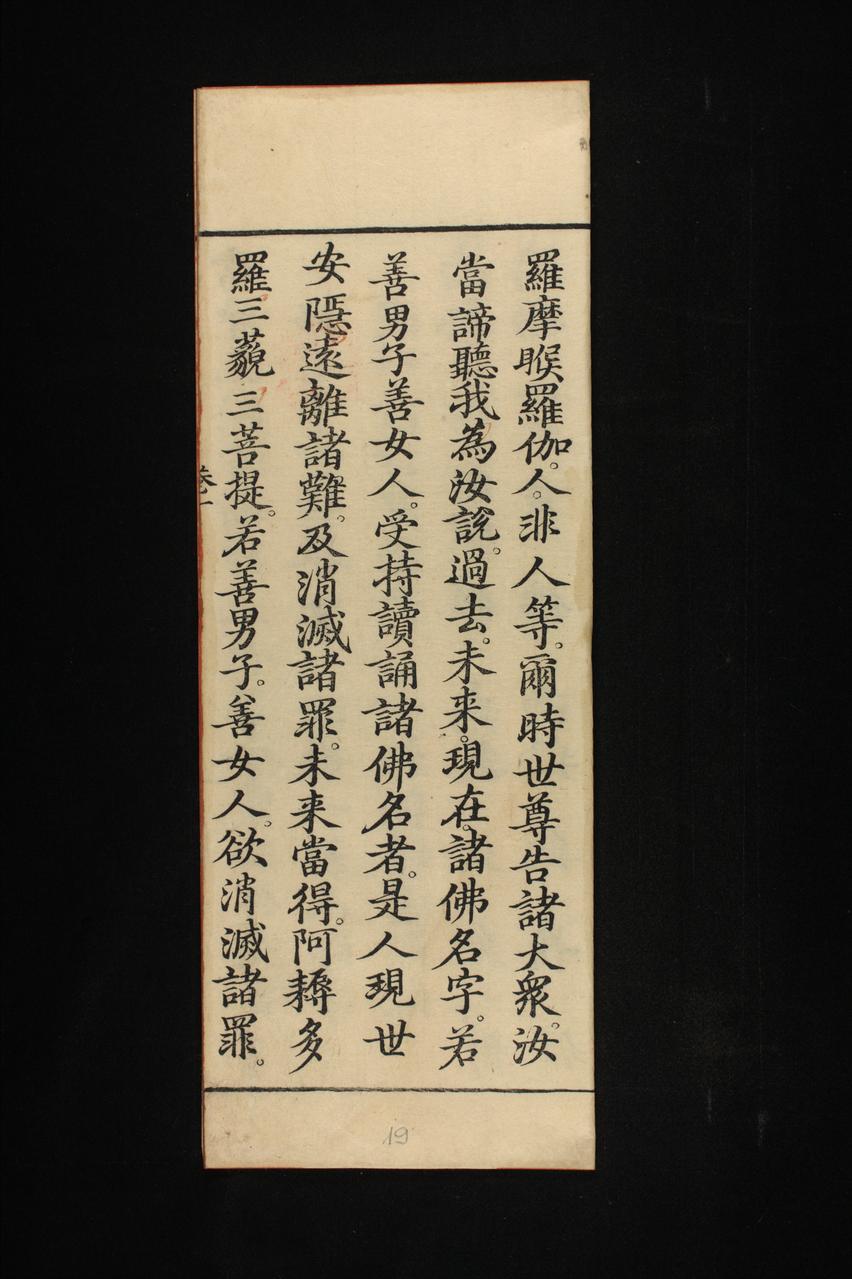 羅摩睺羅伽。人。非人等。爾時世尊告諸大衆。汝
當諦聽我為汝說。過去。未来。現在。諸佛名字。若
善男子善女人。受持讀誦諸佛名者。是人現世
安隱遠離諸難。及消滅諸罪。未来當得。阿耨多
羅三藐三菩提。若善男子。善女人。欲消滅諸罪。
卷一
19